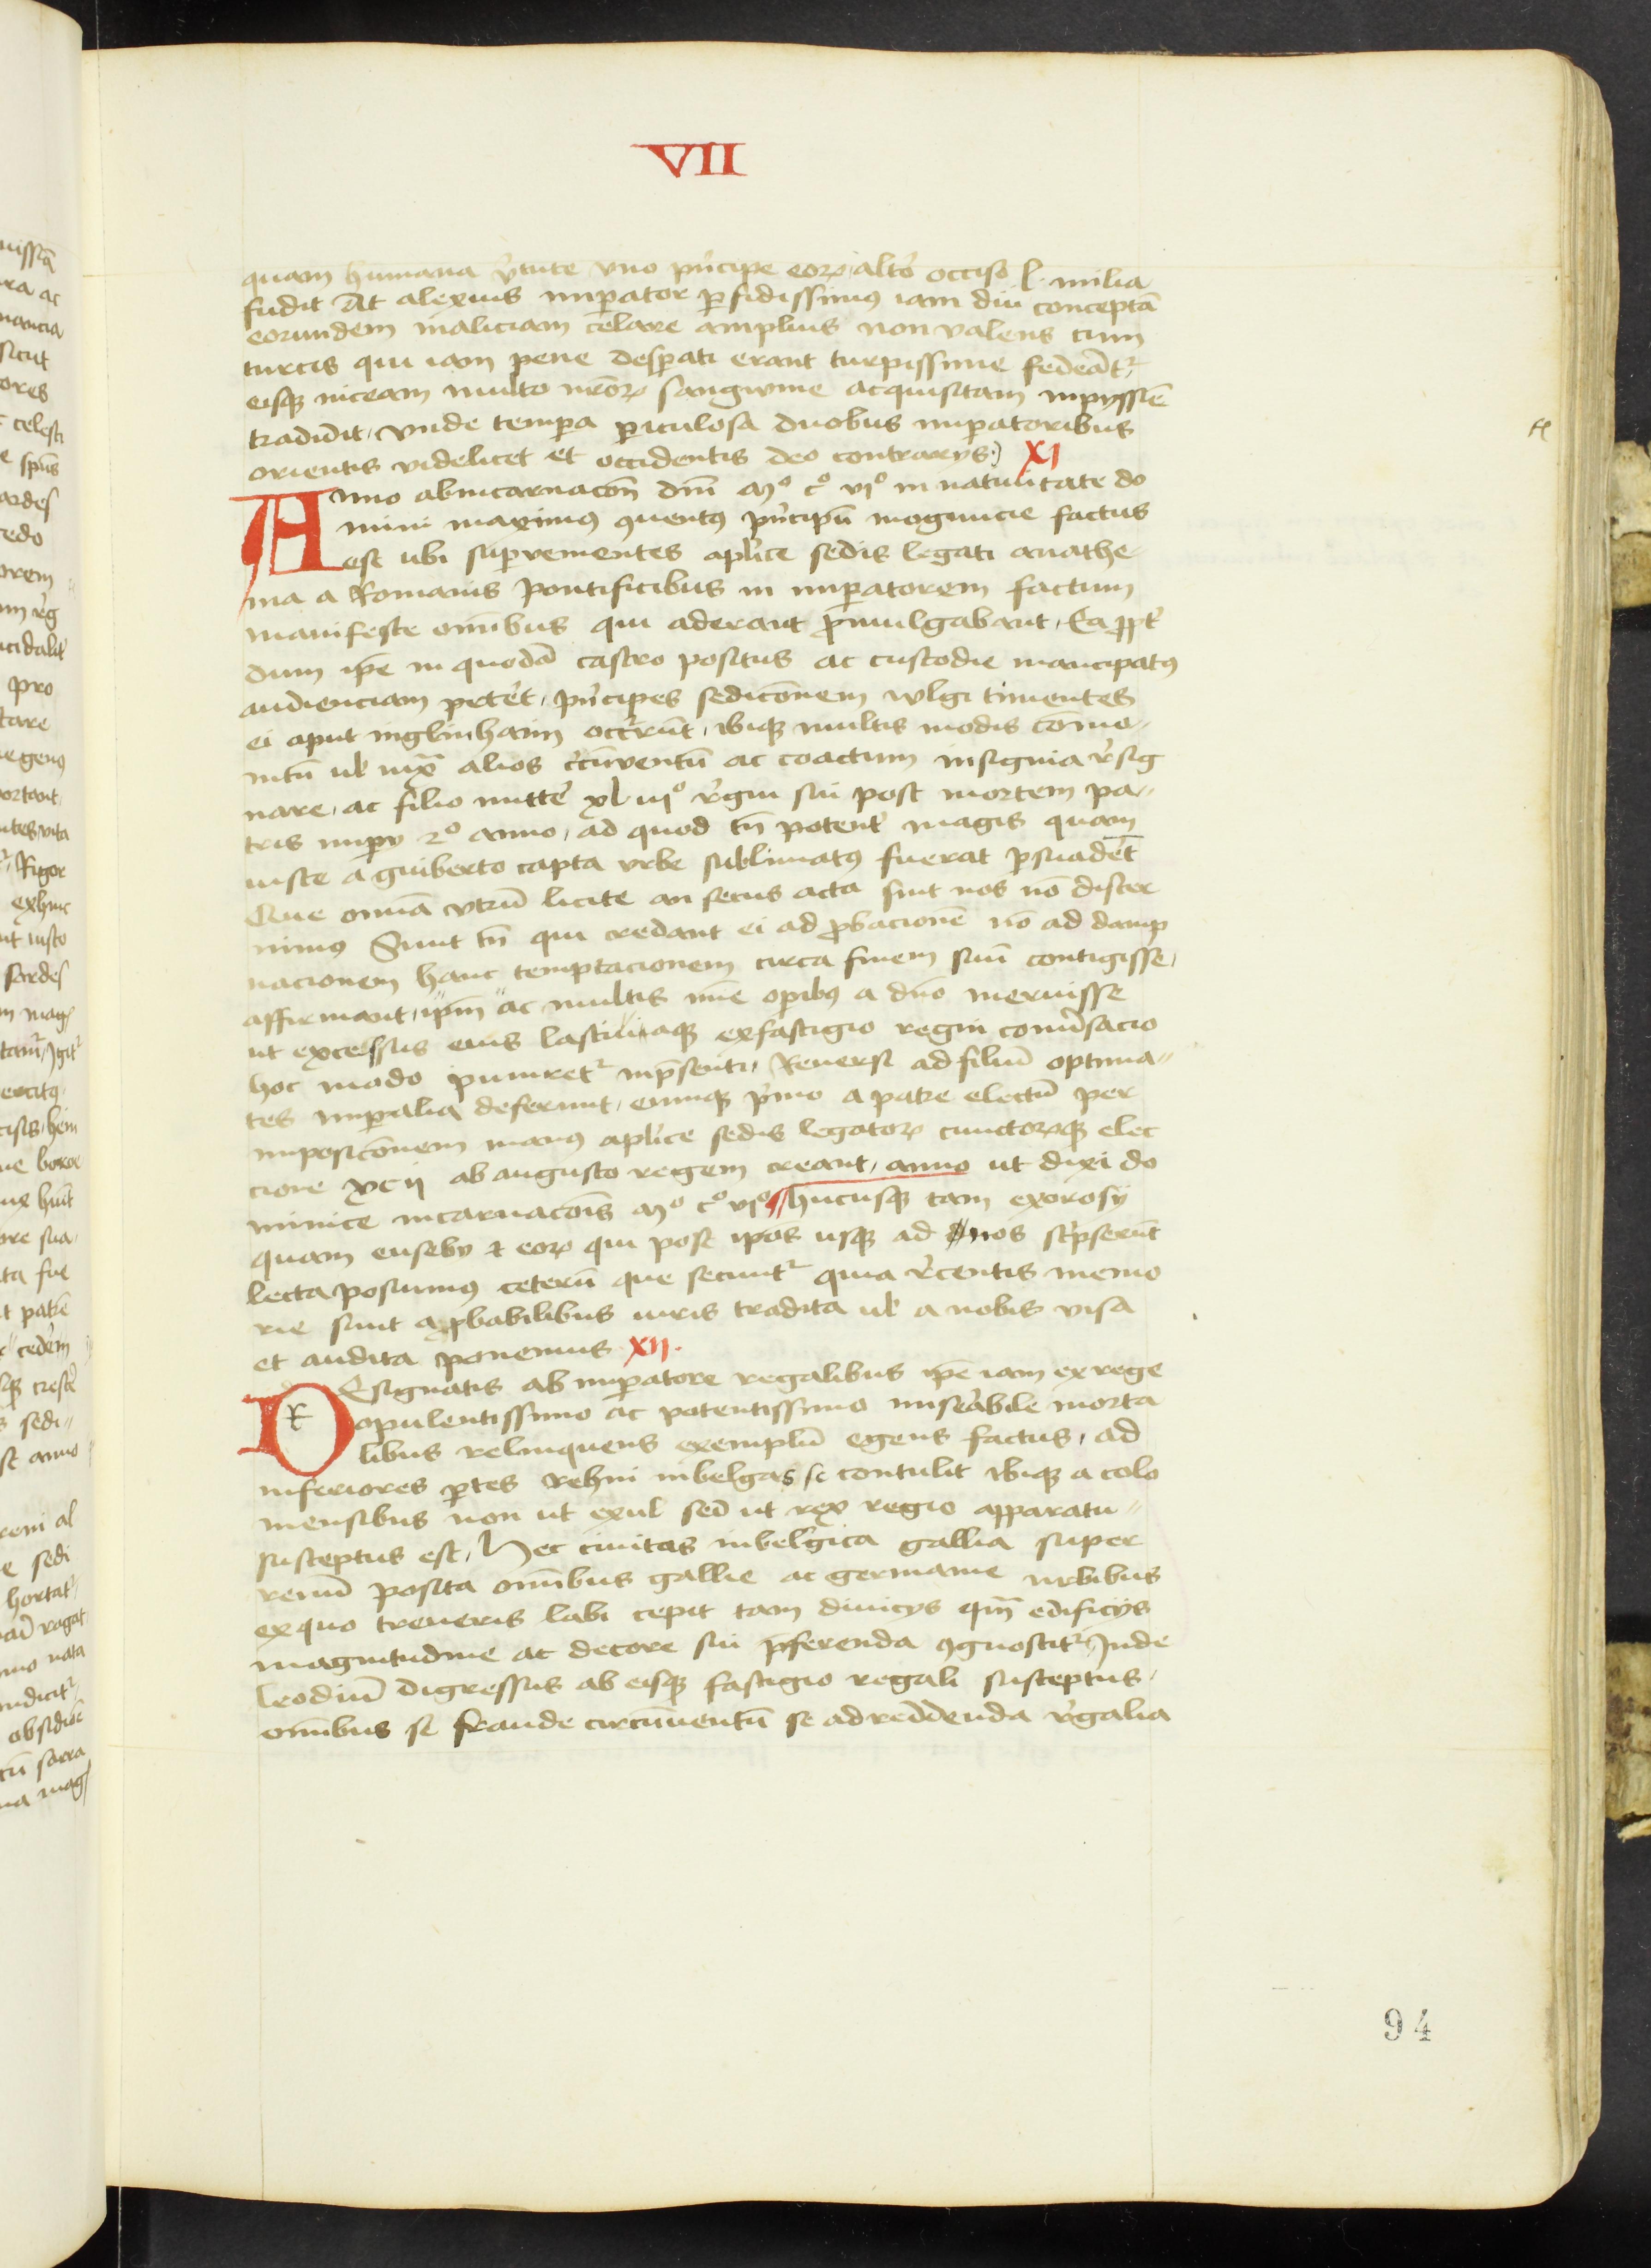 VII
quam humana v̓tute vno pn̓cipe eoꝝ alt̓o occiso l. milia
fudit At alexius imꝑator ꝑfidissimꝰ iam diu conceptā
eorundem maliciam celare amplius non valens cum
turcis qui iam pene desꝑati erant turpissime fedeat̄ᷣ
eisqꝫ niceam multo nr̄oꝝ sangwine acquisitam inpyssīe
tradidit, vnde tempa ꝑiculosa duobus imꝑatoribus
orientis videlicet et occidentis deo contrarys XI
Anno abincarnacōn dnī mº cº viº in natiuitate do
mini maximꝰ ꝯuentꝰ pn̓cipū moguncie factus
est ubi suꝑvenientes apl̓ice sedis legati anathe
ma a Romanis pontificibus in imꝑatorem factum
manifeste omībus qui aderant ꝓmulgabant, Ea ꝓpt̓
dum ip̄e in quodā castro positus ac custodie mancipatꝰ
audienciam pet̓et, pn̓cipes sedicōnem wlgi timentes
ei aput inglinhaim occr̓runt, ibiqꝫ multis modis cōmo
nitū ul̓ iuxͣ alios cr̓cūventū ac coactum insignia r̓sig
nare, ac filio mitte̓ xl iiiº r̓gni sui post mortem pa⸗
tris imꝑy 2º anno, ad quod tn̄ potent̓ magis quam
iuste a guiberto capta vrbe sublimatꝰ fuerat ꝑsuadēt
Que omīa vtrū licite an secus acta sint nos nō discer
nimꝰ Sunt tn̄ qui credant ei ad ꝓbacionē nō ad damp
nacionem hanc temptacionem circa finem suū contigisse,
affirmant, ip̄m ac multis mīe oꝑibꝰ a dn̄o meruisse
ut excessus eius lasciuiaqꝫ exfastigio regni com̄sacio
hoc modo puniretᷣ inp̄senti, Reuersi ad filiū optima⸗
tes imꝑalia deferunt, eumqꝫ p̓mo a patre electū per
imposicōnem manꝰ apl̓ice sedis legatoꝝ cunctoꝝqꝫ elec
cione xcij ab augusto regem creant, anno ut dixi do
minice incarnacōis mº cº viº hucusqꝫ tam exorosy
quam euseby ⁊ eoꝝ qui post ip̄os usqꝫ ad nos sc̓pserūt
lecta posuimꝰ ceterū que secuntᷣ quia r̓centis memo
rie sunt a ꝓbabilibus iuris tradita ul̓ a nobis visa
et audita ponemus XII.
DEsignatis ab imꝑatore regalibus ip̄e iam ex rege
opulentissimo ac potentissimo miserabile morta
libus relinquens exemplū egens factus, ad
inferiores ꝑtes rehni inbelgas se contulit ibiqꝫ a colo
niensibus non ut exul sed ut rex regio apparatu⸗
susceptus est, Hec ciuitas inbelgica gallia super
renū posita omībus gallie ac germanie urbibus
exquo treueris labi cepit tam diuicys qm̄ edificys
magnitudine ac decore sui p̄ferenda ꝯgnoscitᷣ, Inde
leodiū digressus ab eisqꝫ fastigio regali susceptus,
omībus se fraude circūuentū se adreddenda r̓galia
94